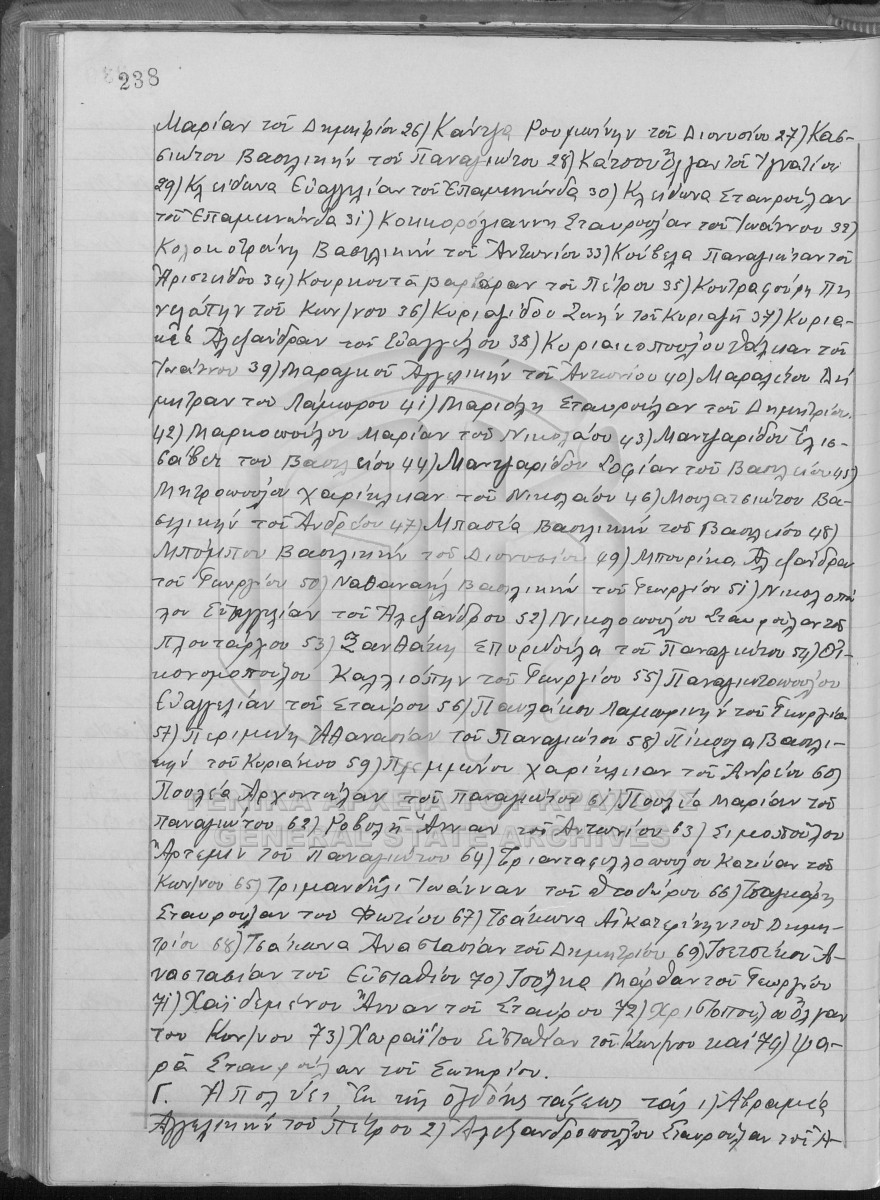 238
Μαρίαν τοῦ Δημητρίου 26) Κάντζα Ρουμπίνην τοῦ Διονυσίου 27) Κασ-
σιώτου Βασιλικήν τοῦ Παναγιώτου 28) Κάτσου Ὄλγαν τοῦ Ἰγνατίου
29) Κλείδωνα Εὐαγγελίαν τοῦ Ἐπαμεινώνδα 30) Κλείδωνα Σταυρούλαν
τοῦ Ἐπαμεινώνδα 31) Κοκκορόγιαννη Σταυρούλαν τοῦ Ἰωάννου 32)
Κολοκοτρώνη Βασιλικήν τοῦ Ἀντωνίου 33) Κούβελα Παναγιώταν τοῦ
Ἀριστείδου 34) Κουρκουτᾶ Βαρβάραν τοῦ Πέτρου 35) Κουτραφούρη Πη
νελόπην τοῦ Κων/νου 36) Κυριαζίδου Ζωήν τοῦ Κυριαζῆ 37) Κυρια-
κέα Ἀλεξάνδραν τοῦ Εὐαγγέλου 38) Κυριακοπούλου Θάλειαν τοῦ
Ἰωάννου 39) Μαραγκοῦ Ἀγγελικήν τοῦ Ἀντωνίου 40) Μαραλέτου Δή
μητραν του Λάμπρου 41) Μαριόλη Σταυρούλαν τοῦ Δημητρίου
42) Μαρκοπούλου Μαρίαν τοῦ Νικολάου 43) Μαντζαρίδου Ἐλισ-
σάβετ του Βασιλείου 44) Μαντζαρίδου Σοφίαν τοῦ Βασιλείου 45)
Μητροπούλου Χαρίκλειαν τοῦ Νικολάου 46) Μουλατσιώτου Βα-
σιλικήν τοῦ Ἀνδρέου 47) Μπασέα Βασιλικήν τοῦ Βασιλείου 48)
Μπόμπου Βασιλικήν τοῦ Διονυσίου 49) Μπουρίκα Ἀλεξάνδραν
τοῦ Γεωργίου 50) Ναθαναήλ Βασιλικήν τοῦ Γεωργίου 51) Νικολοπού
λου Εὐαγγελίαν τοῦ Ἀλεξάνδρου 52) Νικολοπούλου Σταυρούλαν τοῦ
Πλουτάρχου 53) Ξανθάκη Σπυριδούλα τοῦ Παναγιώτου 54) Οἰ-
κονομοπούλου Καλλιόπην τοῦ Γεωργίου 55) Παναγιωτοπούλου
Εὐαγγελίαν τοῦ Σταύρου 56) Παυλάκου Λαμπρινήν τοῦ Γεωργίου
57) Περιμένη Ἀθανασίαν τοῦ Παναγιώτου 58) Πίκουλα Βασιλι-
κήν τοῦ Κυριάκου 59) Πλεμμένου Χαρίκλειαν τοῦ Ἀνδρέου 60)
Πουλέα Ἀρχοντούλαν τοῦ Παναγιώτου 61) Πουλέα Μαρίαν τοῦ
Παναγιώτου 62) Ροβολῆ Ἄνναν τοῦ Ἀντωνίου 63) Σιμοπούλου
Ἄρτεμιν τοῦ Παναγιώτου 64) Τριανταφυλλοπούλου Κατίναν τοῦ
Κων/νου 65) Τριμανδήλι Ἰωάνναν τοῦ Θεοδώρου 66) Τσαγκάρη
Σταυρούλαν του Φωτίου 67) Τσάκωνα Αἰκατερίνην τοῦ Δημη-
τρίου 68) Τσάκωνα Ἀναστασίαν τοῦ Δημητρίου 69) Τσετσέκου Ἀ-
ναστασίαν τοῦ Εὐσταθίου 70) Τσόλκα Μάρθαν τοῦ Γεωργίου
71) Χαϊδεμένου Ἄνναν τοῦ Σταύρου 72) Χριστοπούλου Ὄλγαν
του Κων/νου 73) Χαραΐτου Εὐσταθίαν τοῦ Κων/νου καί 74) Ψα-
ρᾶ Σταυρούλαν τοῦ Σωτηρίου.
Γ. Ἀπολύει, Ἐκ τῆς ὀγδόης τάξεως τάς 1) Ἀβραμέα
Ἀγγελικήν τοῦ Πέτρου 2) Ἀλεξανδροπούλου Σταυρούλαν τοῦ Ἀ-
ΓΕΝΙΚΑ ΑΡΧΕΙΑ ΤΟΥ ΚΡΑΤΟΥΣ
GENERAL STATE ARCHIVES